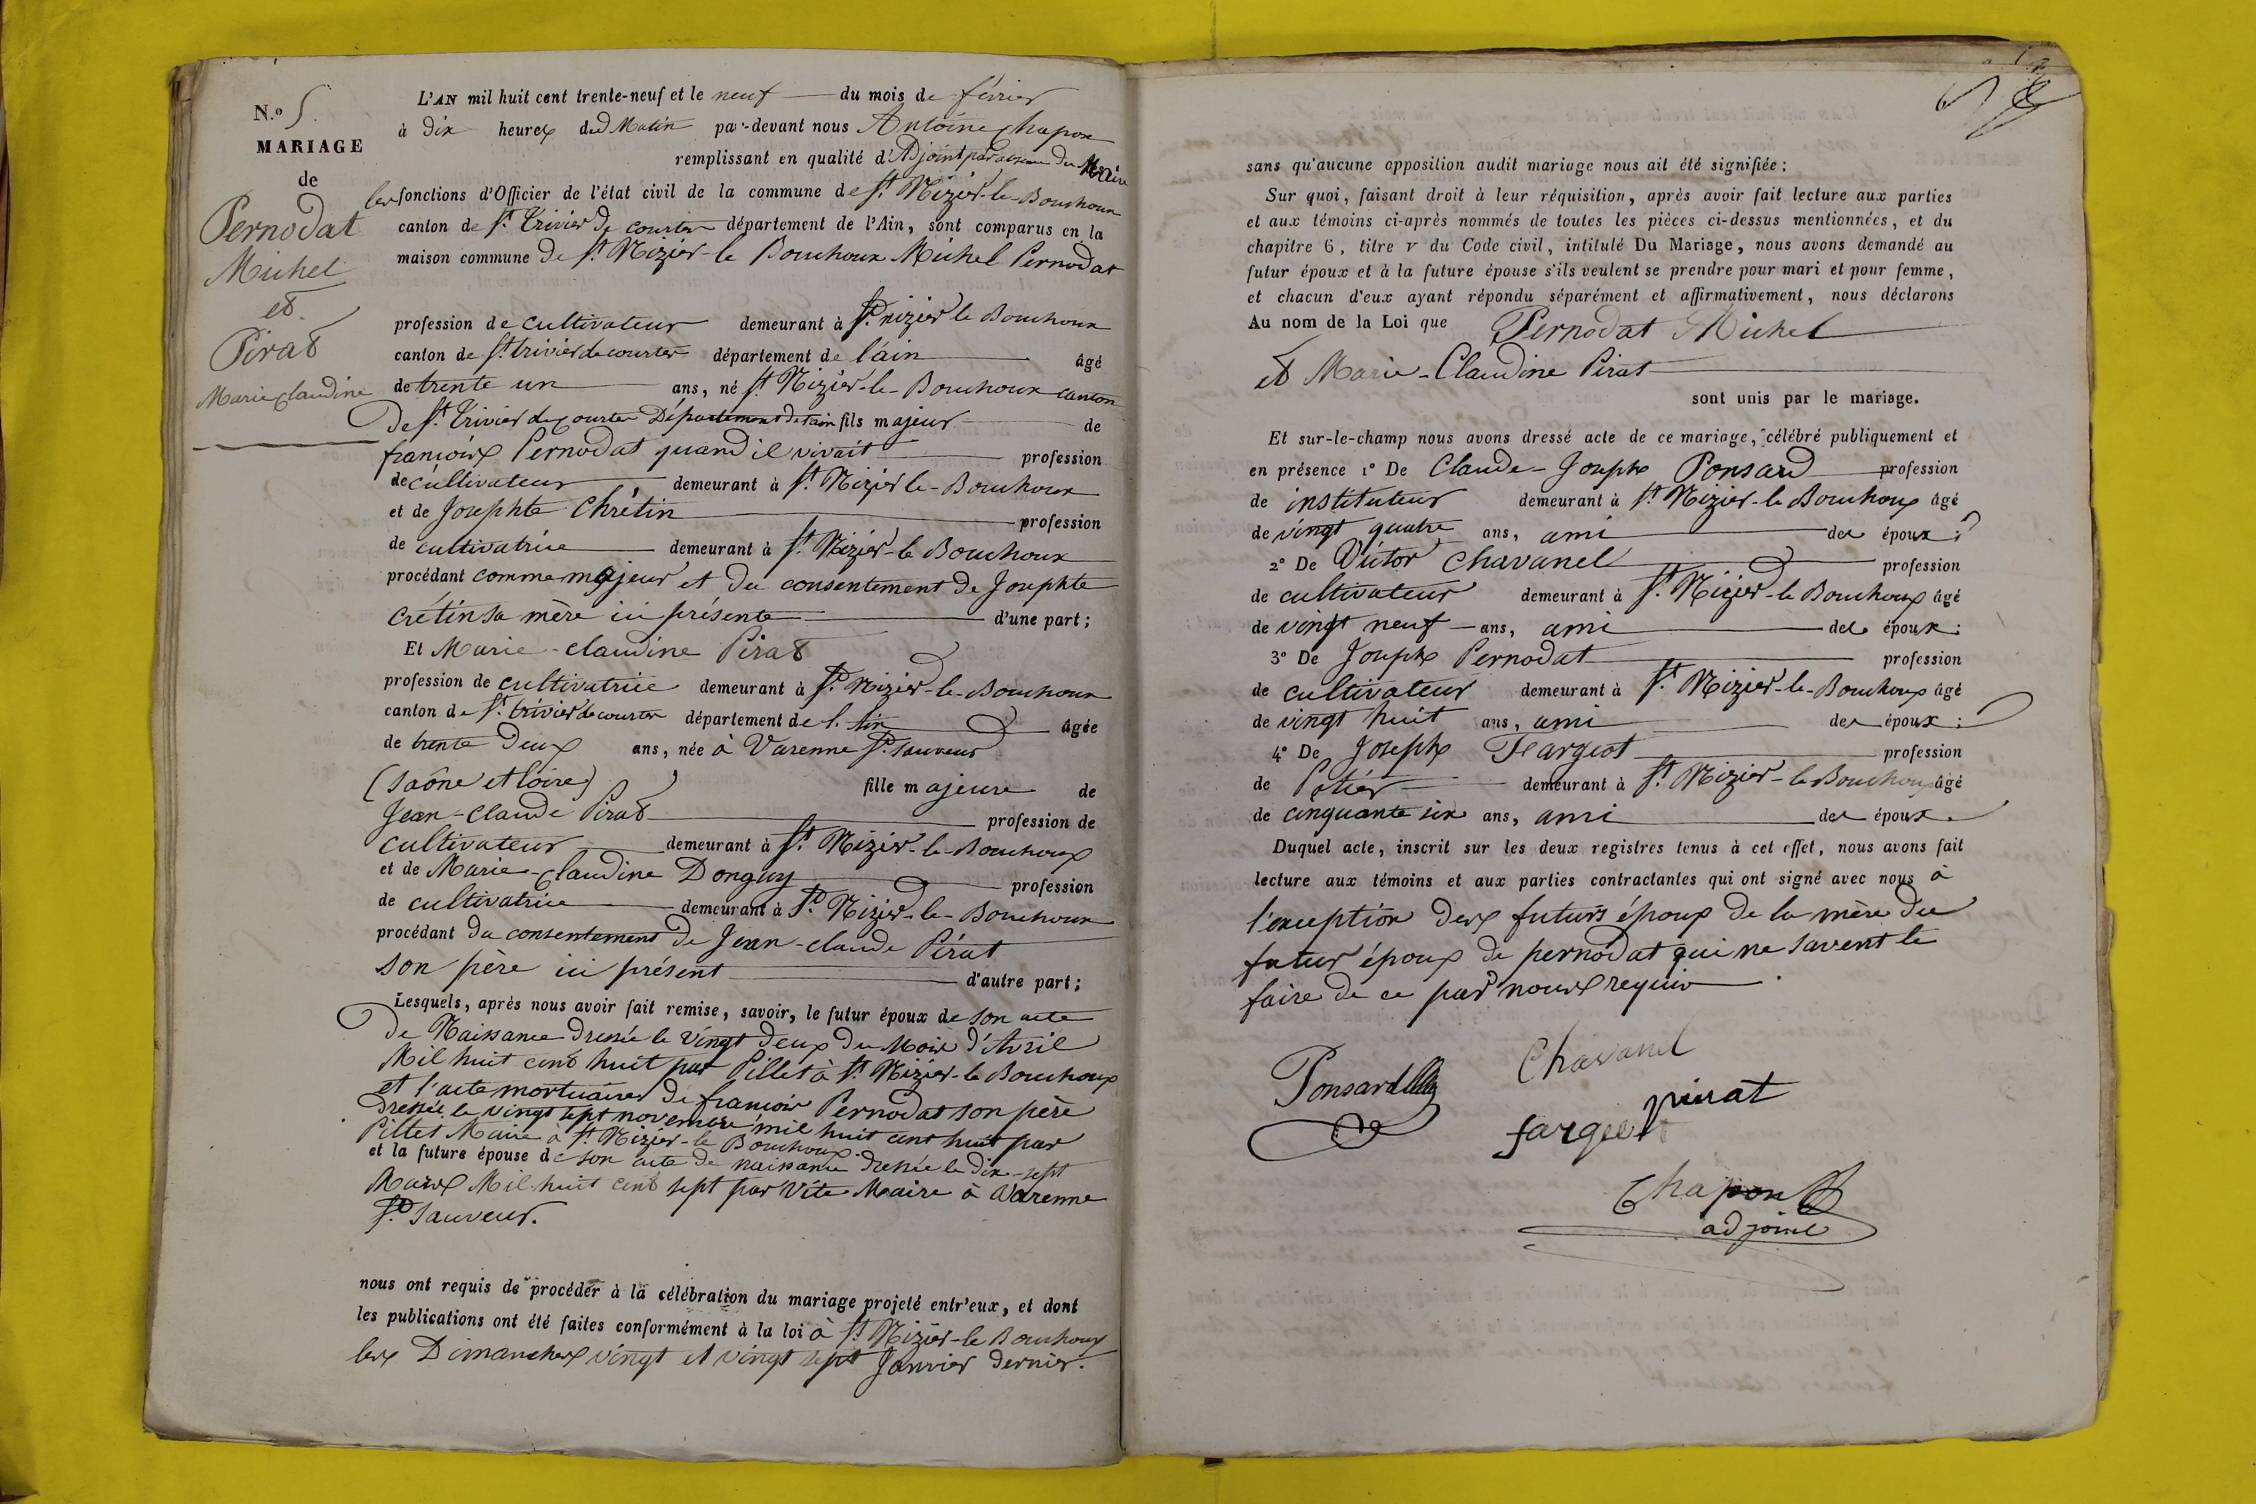 N.º 5.
MARIAGE
de
Pernodat
Michel
et
Pirat
Marie Claudine
L'AN mil huit cent trente-neuf et le neuf du mois de février
à dix heures du Matin par-devant nous Antoine Chapon
remplissant en qualité d'Adjoint par du Maire
les fonctions d'Officier de l'état civil de la commune de St. Nizier-le-Bouchoux
canton de St. Trivier de courtes département de l'Ain, sont comparus en la
maison commune de St. Nizier-le Bouchoux Michel Pernodat
profession de cultivateur demeurant à St. nizier le Bouchoux
canton de St. trivier de courtes département de l'ain âgé
de trente un ans, né St. Nizier-le-Bouchoux canton
De St. Trivier de Courtes Département de l'ain fils majeur de
françois Pernodat quand il vivait profession
de cultivateur demeurant à St. Nizier le-Bouchoux
et de Josephte Chrétin profession
de cultivatrice demeurant à St. Nizier-le Bouchoux
procédant comme majeur et du consentement de Josephte
crétin sa mère ici présente d'une part ;
Et Marie-claudine Pirat
profession de cultivatrice demeurant à St. Nizier-le-Bouchoux
canton de St. trivier de courtes département de l'Ain âgée
de trente deux ans, née à Varenne St. Sauveur
(saône et loire) fille majeure de
Jean-Claude Pirat profession de
cultivateur demeurant à St. Nizier-le-Bouchoux
et de Marie-Claudine Donguy profession
de cultivatrice demeurant à St. Nizier-le-Bouchoux
procédant du consentement de Jean-claude Pirat
son père ici présent d'autre part ;
Lesquels, après nous avoir fait remise, savoir, le futur époux de son acte
de Naissance dressée le vingt deux du Mois d'Avril
Mil huit cent huit par Pillet à St. Nizier-le Bouchoux
et l'acte mortuaire de françois Pernodat son père
dressée le vingt sept novembre mil huit cent huit par
Pillet Maire à St. Nizier-le Bouchoux.
et la future épouse de son acte de naissance dressée le dix-sept
Mars Mil huit cent sept par Vite Maire à Varenne
St. Sauveur.
nous ont requis de procéder à la célébration du mariage projeté entr'eux, et dont
les publications ont été faites conformément à la loi à St. Nizier-le Bouchoux
les Dimanches vingt et vingt sept Janvier dernier.
sans qu'aucune opposition audit mariage nous ait été signifiée ;
Sur quoi, faisant droit à leur réquisition, après avoir fait lecture aux parties
et aux témoins ci-après nommés de toutes les pièces ci-dessus mentionnées, et du
chapitre 6, titre V du Code civil, intitulé Du Mariage, nous avons demandé au
futur époux et à la future épouse s'ils veulent se prendre pour mari et pour femme,
et chacun d'eux ayant répondu séparément et affirmativement, nous déclarons
Au nom de la Loi que Pernodat Michel
et Marie-Claudine Pirat
sont unis par le mariage.
Et sur-le-champ nous avons dressé acte de ce mariage, célébré publiquement et
en présence 1º De Claude-Joseph Ponsard profession
de instituteur demeurant à St. Nizier-le Bouchoux âgé
de vingt quatre ans, ami des époux ;
2º De Victor Chavanel profession
de cultivateur demeurant à St. Nizier-le Bouchoux âgé
de vingt neuf ans, ami des époux ;
3º De Joseph Pernodat profession
de cultivateur demeurant à St. Nizier-le-Bouchoux âgé
de vingt huit ans, ami des époux ;
4º De Joseph Fargeot profession
de Potier demeurant à St. Nizier-le Bouchoux âgé
de cinquante six ans, ami des époux.
Duquel acte, inscrit sur les deux registres tenus à cet effet, nous avons fait
lecture aux témoins et aux parties contractantes qui ont signé avec nous à
l'exception des futurs époux de la mère du
futur époux de pernodat qui ne savent le
faire de ce par nous requis.
Ponsard
Chavanel
pirat
fargeot
Chapon
adjoint